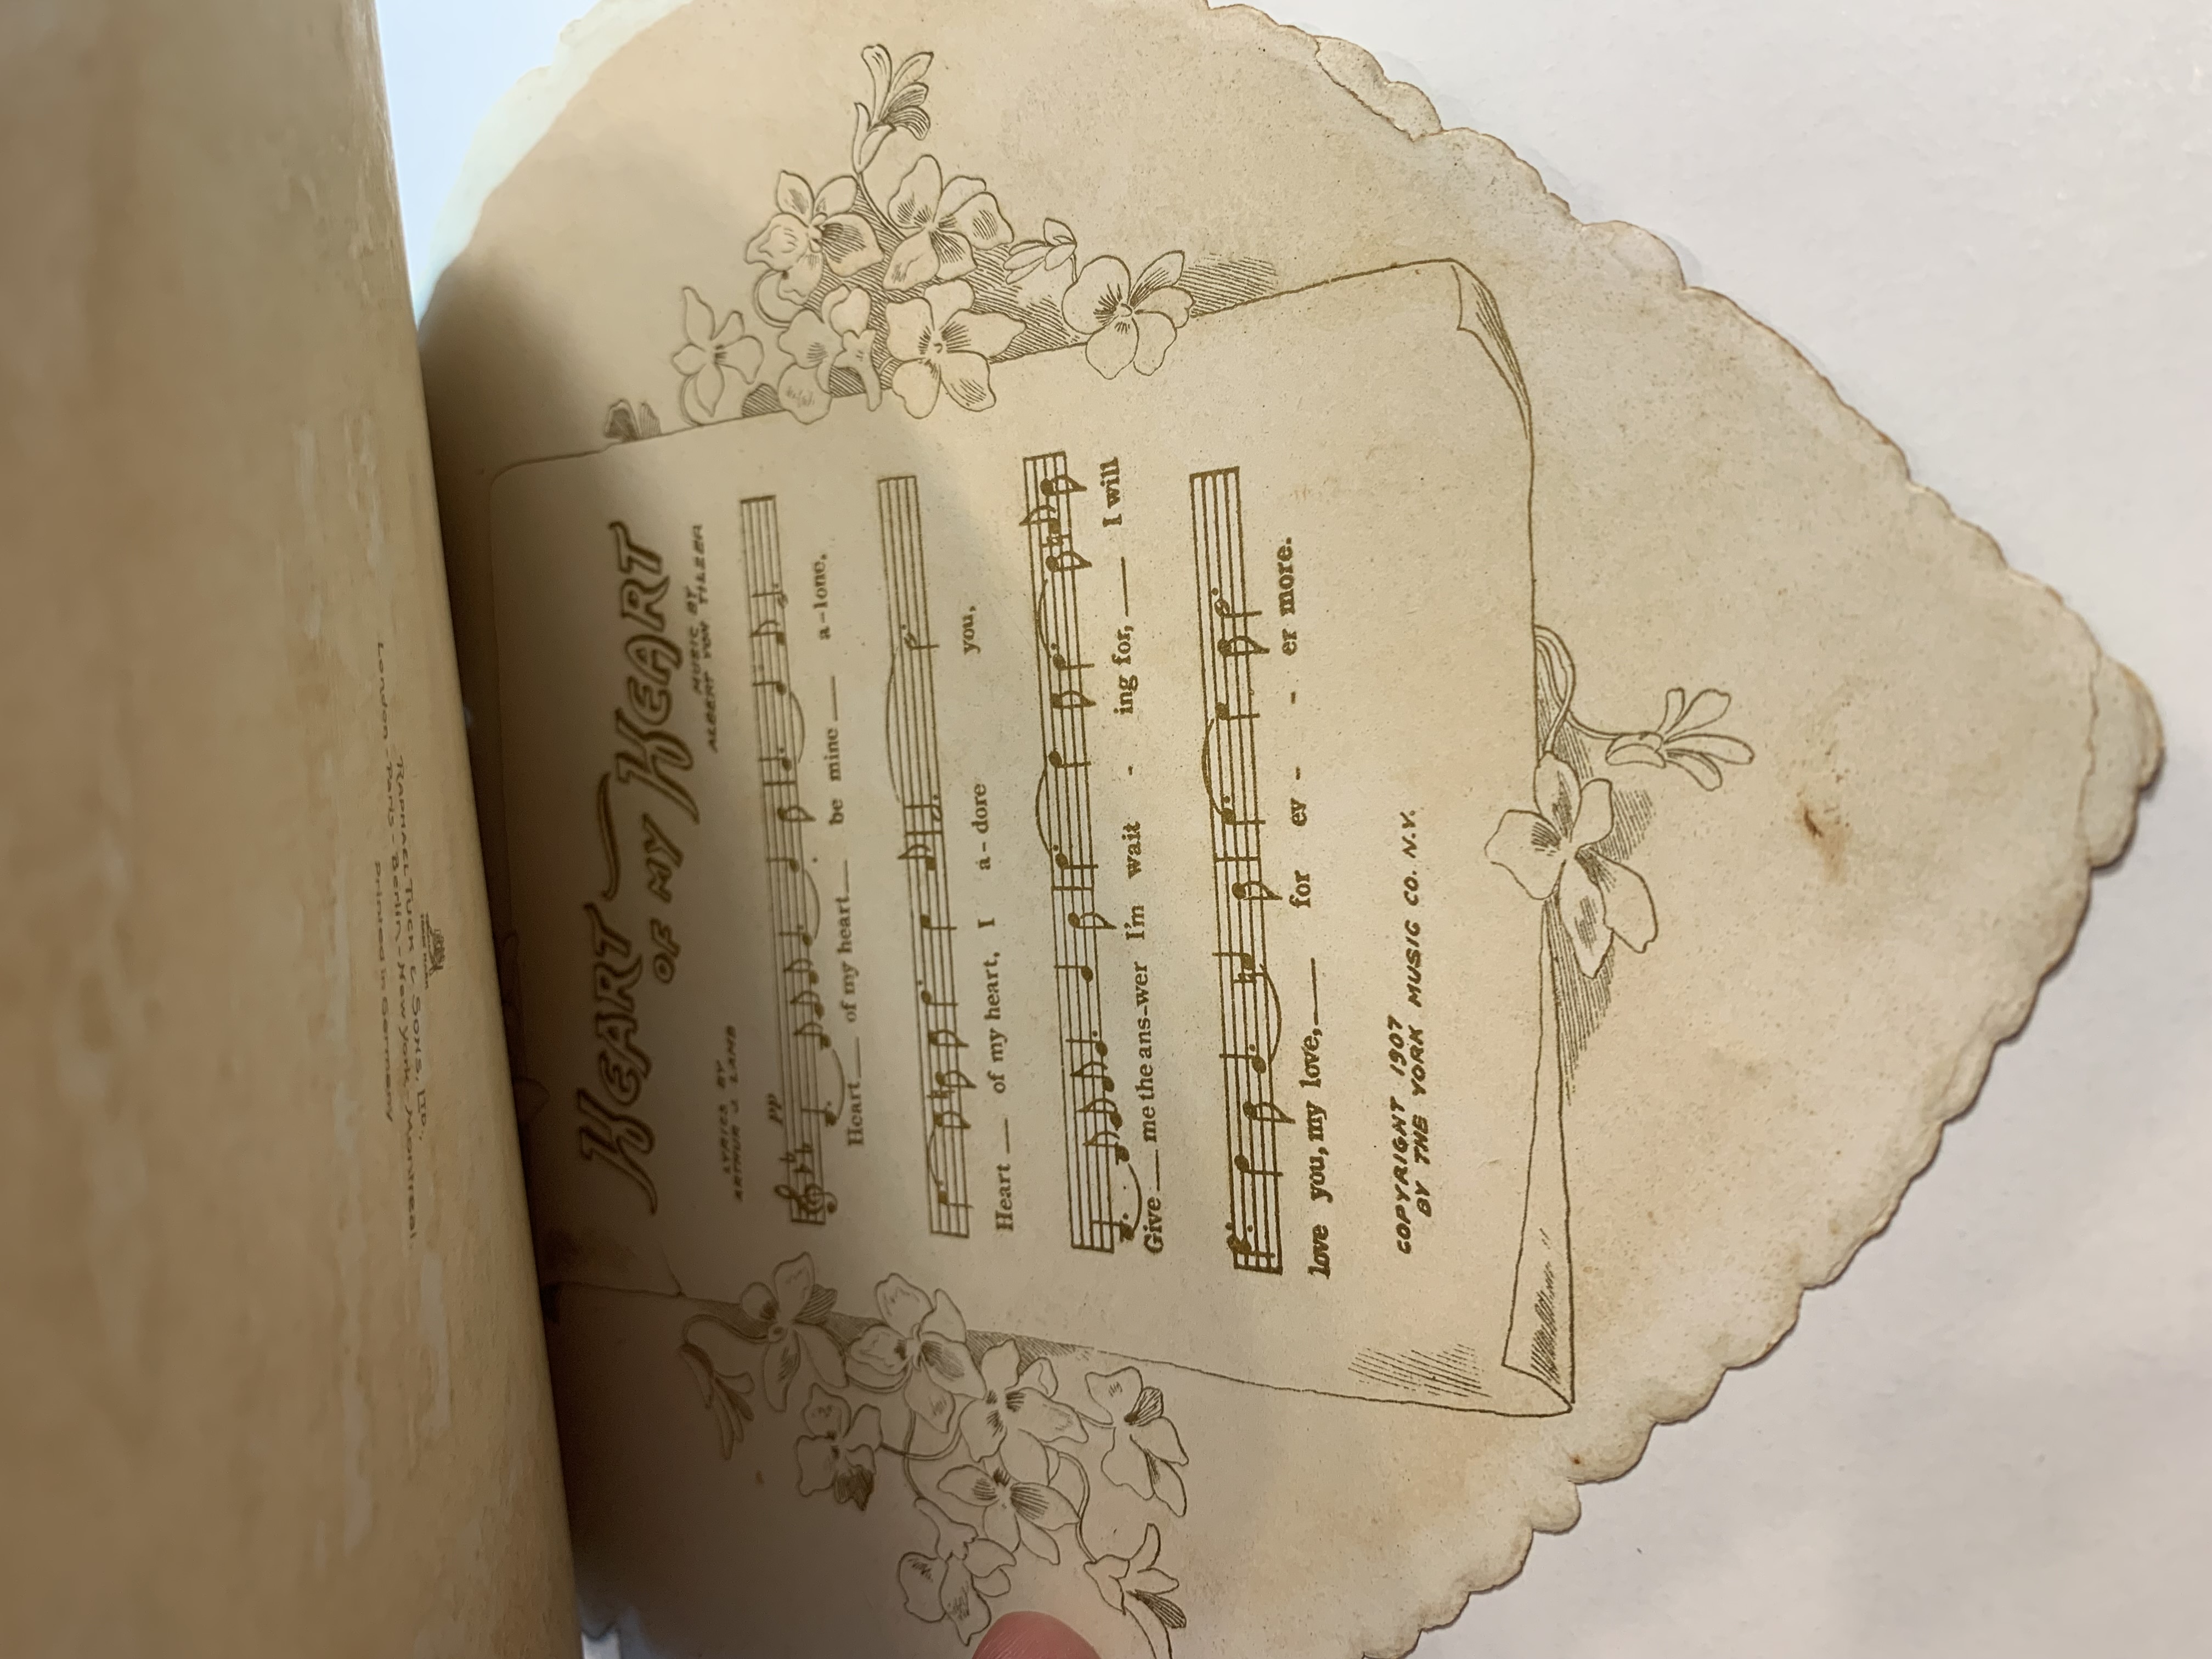 HEART
OF MY HEART
LYRICS BY
ARTHUR J. LAMB
MUSIC BY
ALBERT VON TILZER
pp
Heart of my heart be mine a-lone.
Heart of my heart, I a-dore you,
Give me the ans-wer I'm wait - ing for, I will
love you, my love, for ev - - er more.
COPYRIGHT 1907
BY THE YORK MUSIC CO. N.Y.
RAPHAEL TUCK & SONS, LTD.,
London-Paris-Berlin-New York-Montreal.
Printed in Germany